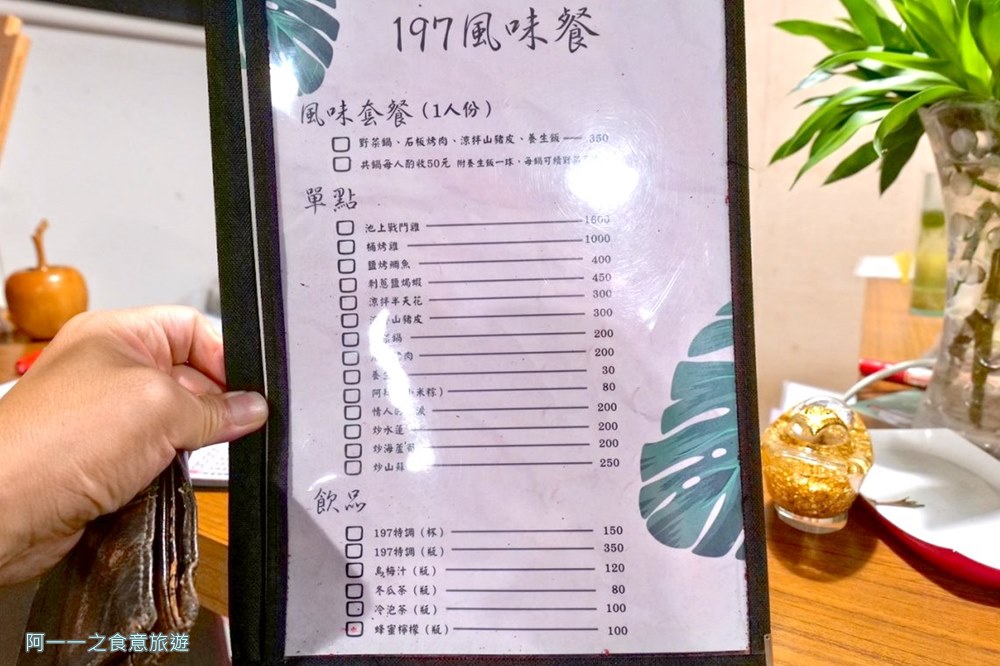 197風味餐
風味套餐(1人份)
野菜鍋、石板烤肉、涼拌山豬皮、養生飯 350
共鍋每人酌收50元 附養生飯一球,每鍋可續野菜
單點
池上戰鬥雞 1600
桶烤雞 1000
鹽烤鯛魚 400
刺蔥鹽焗蝦 450
涼拌半天花 300
山豬皮 300
鍋 200
烤肉 200
養生 30
阿 米粽) 80
情人的 波 200
炒水蓮 200
炒海 200
炒山蘇 250
飲品
197特調(杯) 150
197特調(瓶) 350
烏梅汁(瓶) 120
冬瓜茶(瓶) 80
冷泡茶(瓶) 100
蜂蜜檸檬(瓶) 100
阿一一之食意旅遊